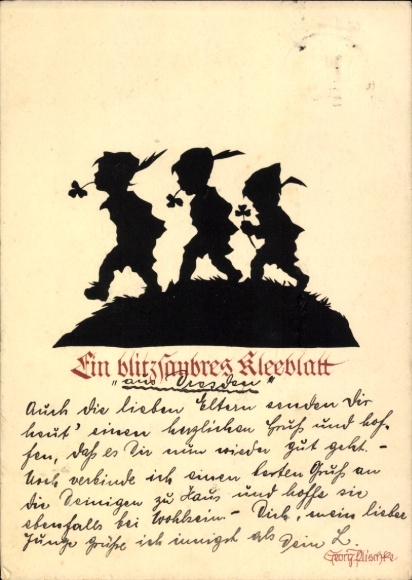 Ein blitzsaubres Kleeblatt
"aus Dresden"
Auch die lieben Eltern senden Dir
heut' einen herzlichen Gruß und hof-
fen, daß es Dir nun wieder gut geht. -
Noch verbinde ich einen Gruß an
die Deinigen zu Haus und hoffe sie
ebenfalls bei Wohlsein - Dich, mein lieber
Junge grüße ich innigst als Dein L.
Georg Plischke